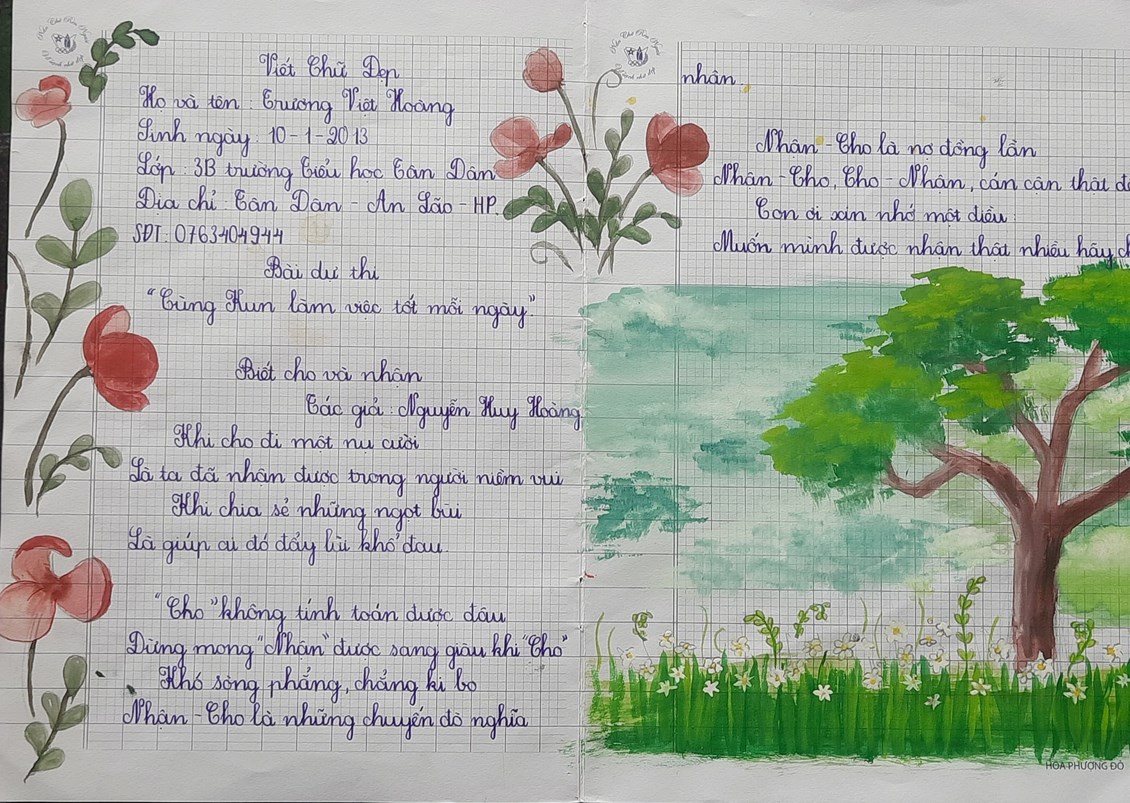 Viết Chữ Đẹp
Họ và tên : Trương Việt Hoàng
Sinh ngày : 10 - 1 - 2013
Lớp : 3B trường Tiểu học Tân Dân
Địa chỉ : Tân Dân - An Lão - HP.
SĐT : 0763404944
Bài dự thi
"Cùng Kun làm việc tốt mỗi ngày".
Biết cho và nhận
Tác giả : Nguyễn Huy Hoàng
Khi cho đi một nụ cười
Là ta đã nhận được trong người niềm vui
Khi chia sẻ những ngọt bùi
Là giúp ai đó đẩy lùi khổ đau.
"Cho" không tính toán được đâu
Đừng mong "Nhận" được sang giàu khi "Cho"
Khó sòng phẳng, chẳng ki bo
Nhận - Cho là những chuyến đò nghĩa
nhân.
Nhận - Cho là nợ đồng lần
Nhận - Cho, Cho - Nhận, cán cân thật
Con ơi xin nhớ một điều :
Muốn mình được nhận thật nhiều hãy
HOA PHƯỢNG ĐỎ